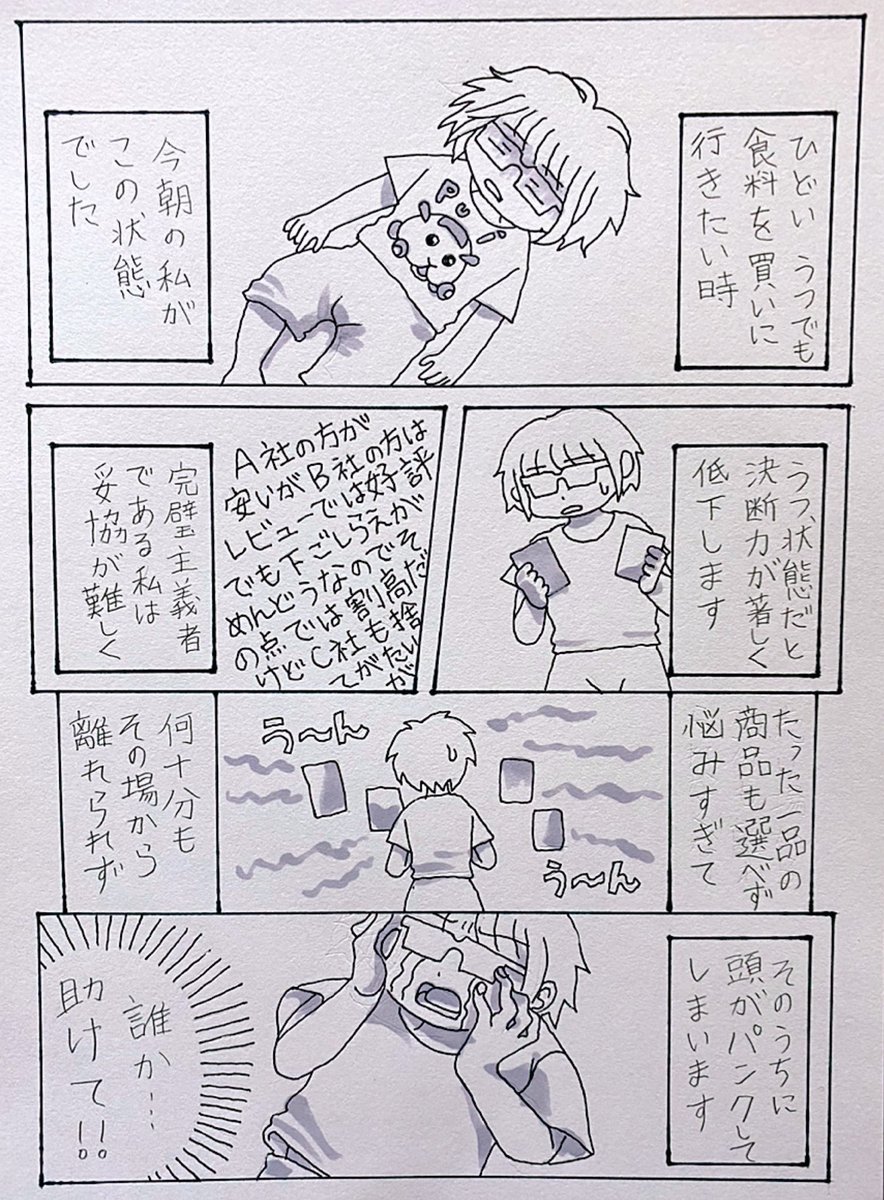 ひどい うつでも
食料を買いに
行きたい時
Pui
今朝の私が
この状態
でした
うつ状態だと
決断力が著しく
低下します
A社の方が
安いがB社の方は
レビューでは好評
でも下ごしらえが
めんどうなのでそ
の点では割高だ
けどC社も捨
てがたいが
完璧主義者
である私は
妥協が難しく
たった一品の
商品も選べず
悩みすぎて
う〜ん
う〜ん
何十分も
その場から
離れられず
そのうちに
頭がパンクして
しまいます
誰か…
助けて!!